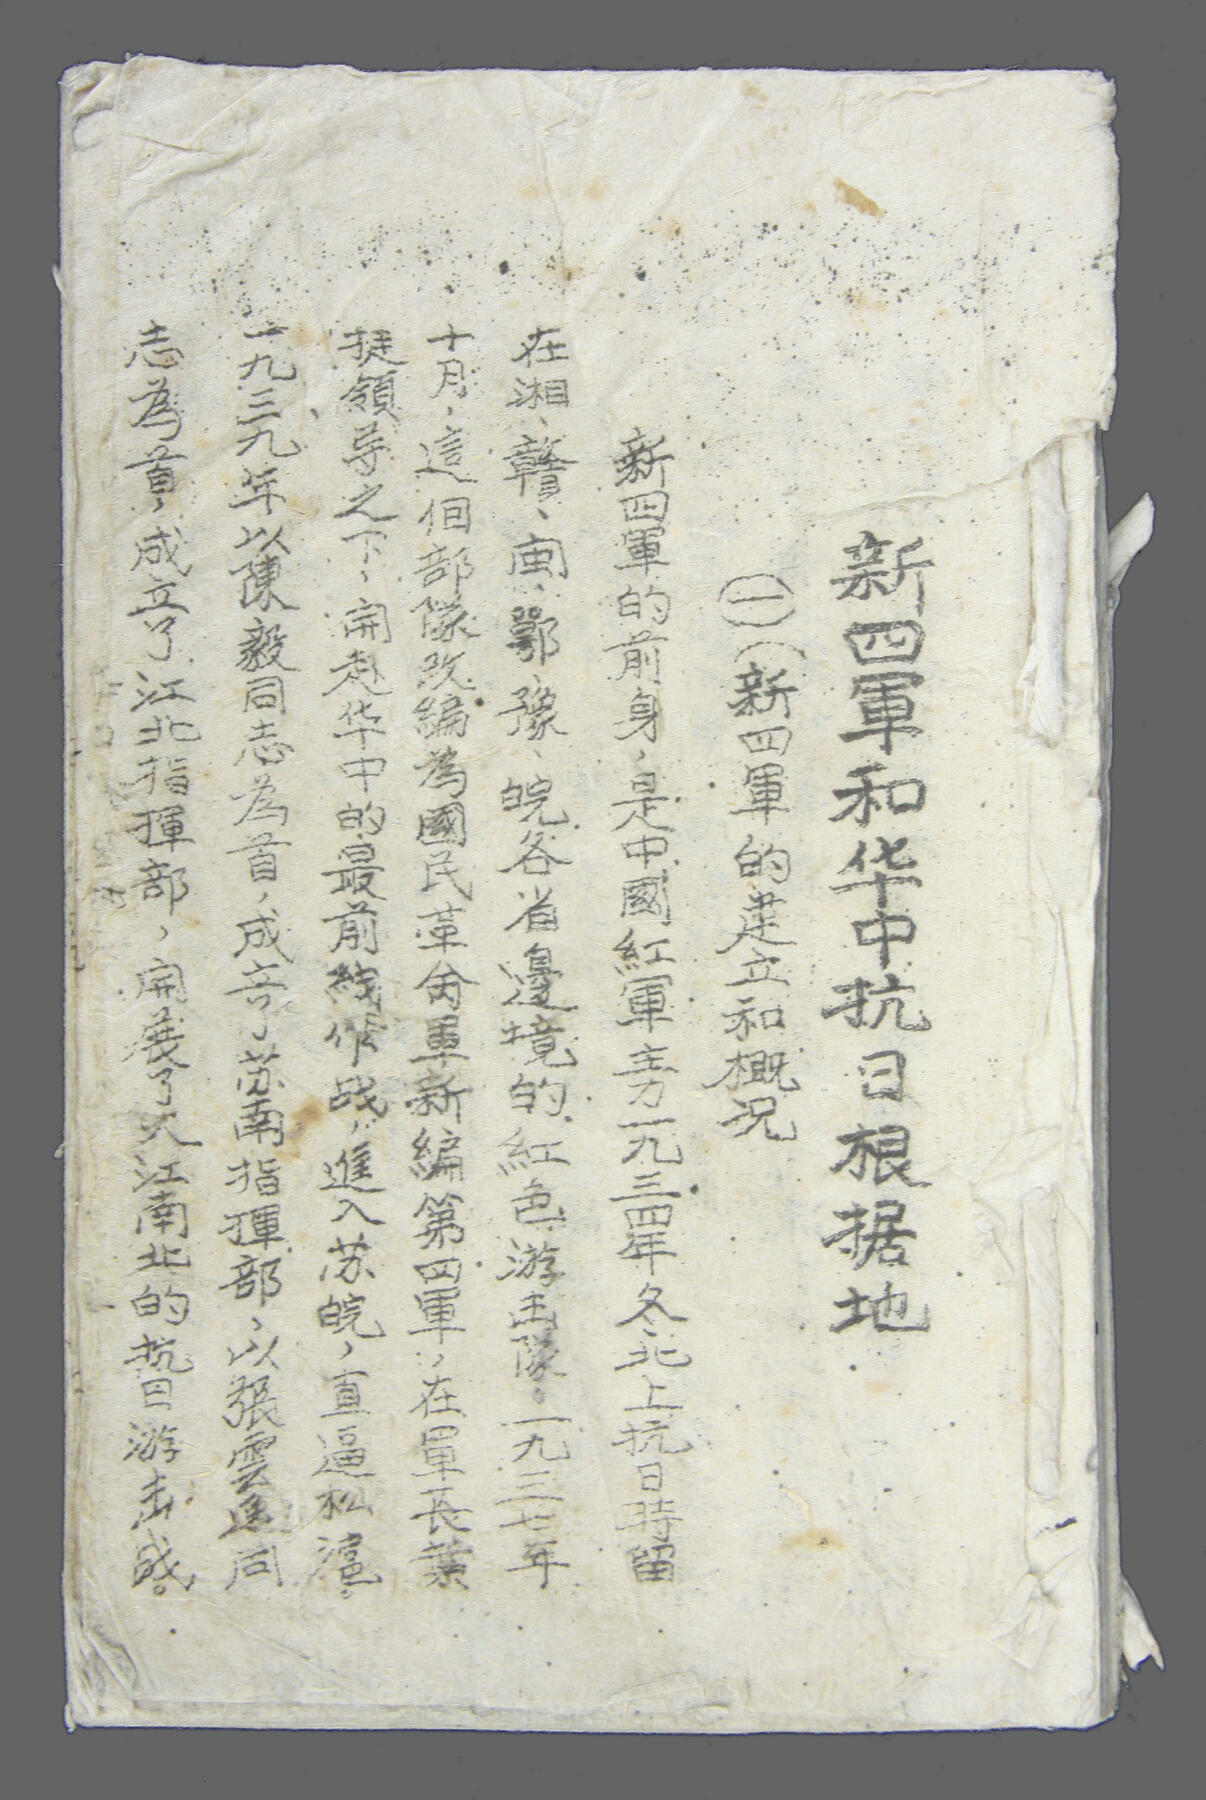 新四軍和华中抗日根据地
(一)(新四軍的建立和概况
新四軍的前身,是中國紅軍主力一九三四年冬北上抗日時留
在湘、贛、闽、鄂、豫、皖各省邊境的紅色游击隊。一九三七年
十月,這個部隊改編為國民革命軍新編第四軍,在軍長葉
挺領导之下,開赴华中的最前綫作战,進入苏皖,直逼松滬。
一九三九年以陳毅同志為首,成立了苏南指揮部,以張雲逸同
志為首,成立了江北指揮部,開展了大江南北的抗日游击战。